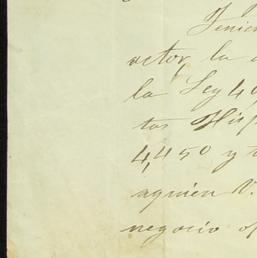 Tenien
actor, la
la Ley 40
tos Hisp
4,450 y t
aquien V.
negocio of